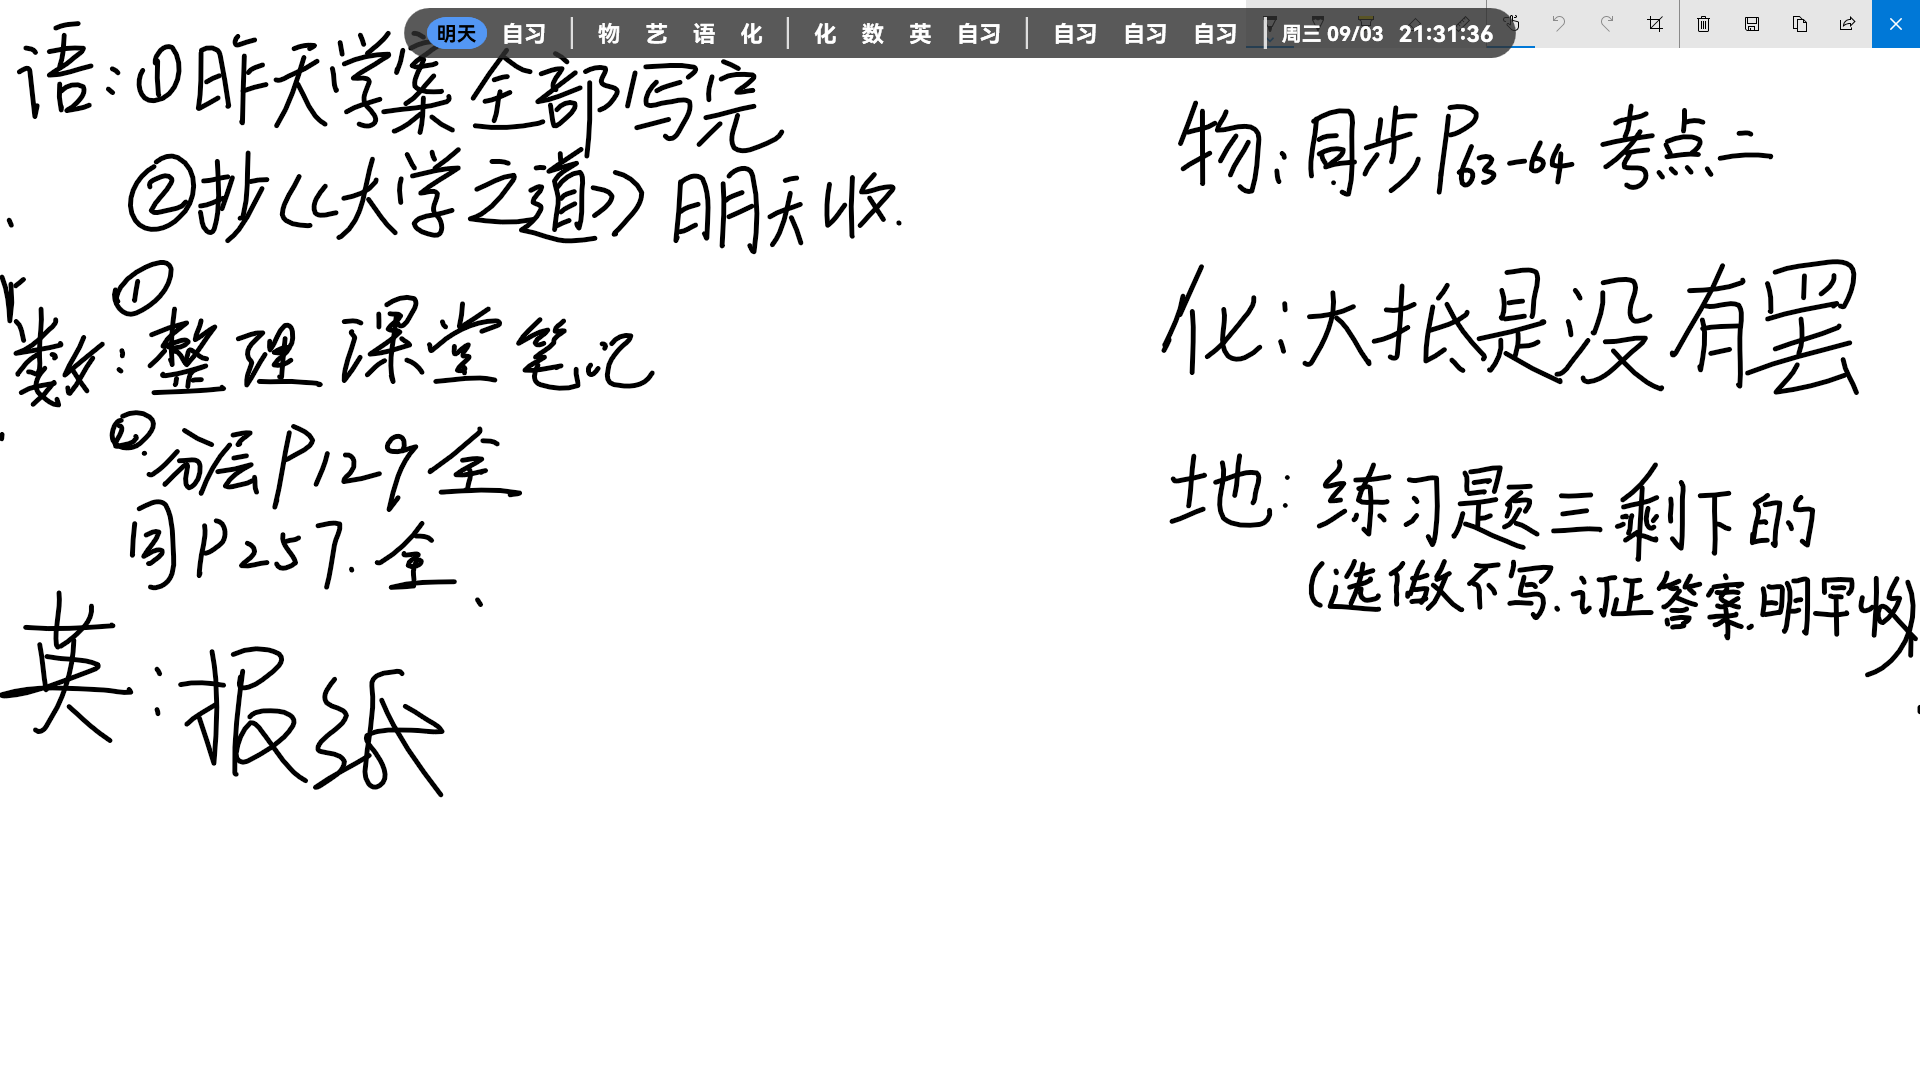 明天 自习 | 物 艺 语 化 | 化 数 英 自习 | 自习 自习 自习 | 周三 09/03 21:31:36
语:①昨天学案全部写完
②抄《大学之道》明天收.
数:①整理课堂笔记
②.分层P129全
同P257.全、
英:报纸
物:同步P63-64 考点二
化:大抵是没有罢
地:练习题三剩下的
(选做不写.订正答案.明早收)